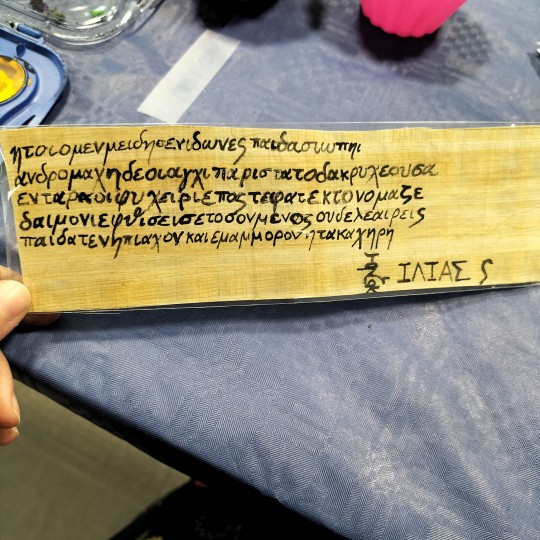 ητοιομενμειδησενιδωνες παιδασιωπηι
ανδρομαχηδεοιαγχιπαριστατοδακρυχεουσα
ενταραοιφυχειριεπος τεφατεκτονομαζε
δαιμονιεφθισεισετοσονμενοςουδελεαιρεις
παιδατενηπιαχονκαιεμαμμορονητακαχηρη
ΙΛΙΑΣ ς